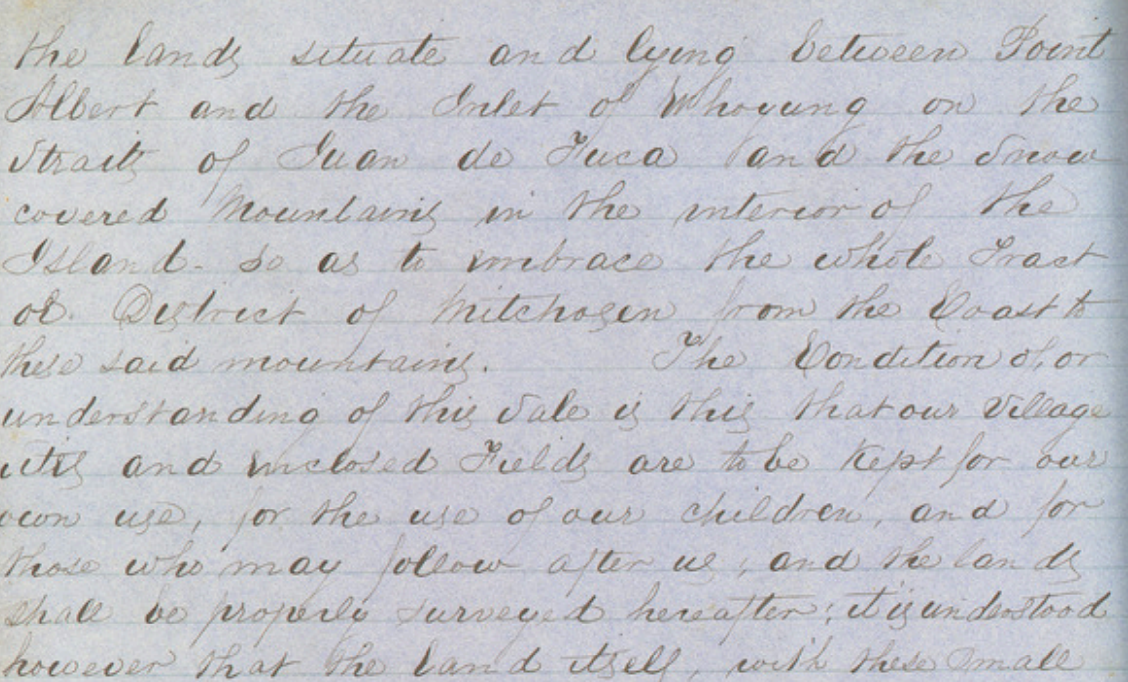 the lands situate and lying between Point
Albert and the Inlet of Whoyung on the
Straits of Juan de Fuca and the Snow
covered Mountains in the interior of the
Island - so as to embrace the whole Tract
or District of Mitchosen from the Coast to
these said mountains. The Condition of, or
understanding of this Sale is this that our Village
sites and inclosed Fields are to be Kept for our
own use, for the use of our children, and for
those who may follow after us; and the lands
shall be properly surveyed hereafter; it is understood
however that the land itself, with these small